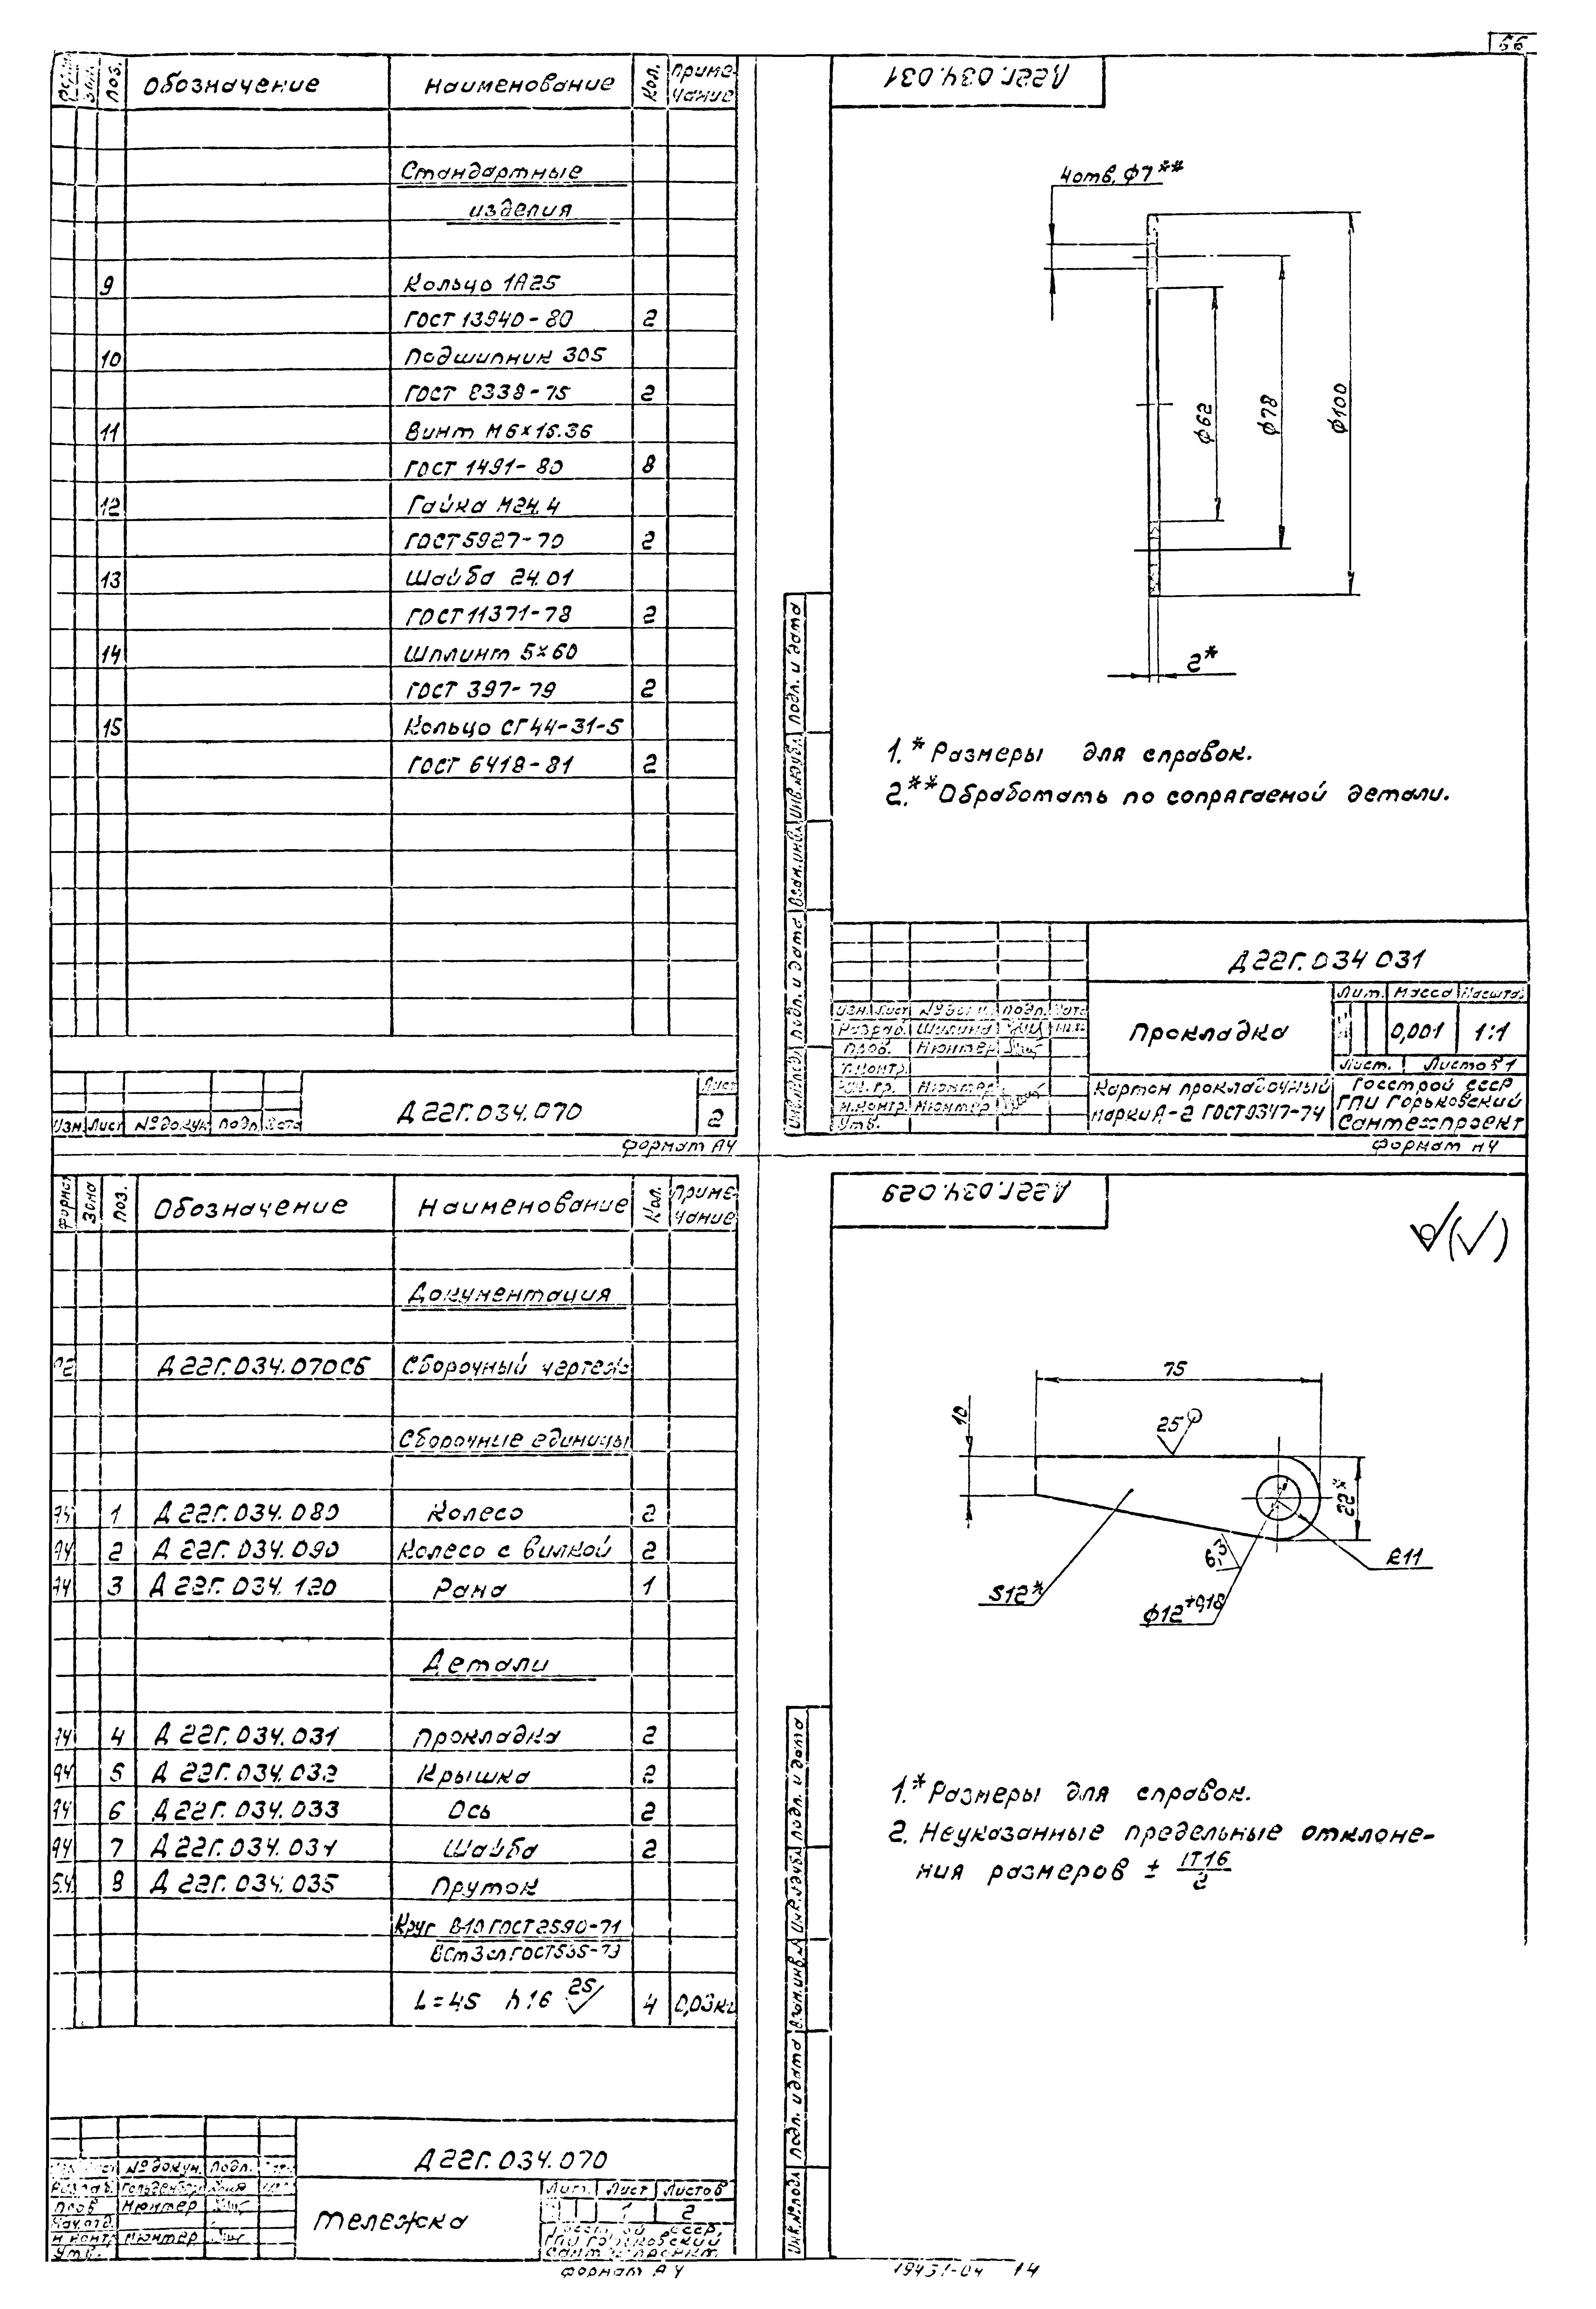 66
Поз. Обозначение Наименование Кол. Приме-
чание
Стандартные
изделия
9 Кольцо 1А25
ГОСТ 13940-80 2
10 Подшипник 305
ГОСТ 8338-75 2
11 Винт М6×16.36
ГОСТ 1491-80 8
12 Гайка М24.4
ГОСТ 5927-70 2
13 Шайба 24.01
ГОСТ 11371-78 2
14 Шплинт 5×60
ГОСТ 397-79 2
15 Кольцо СГ44-31-5
ГОСТ 6418-81 2
Изм. Лист № докум. Подп. Дата
Д22Г.034.070
Лист
2
Формат А4
Д22Г.034.031
4 отв. ф7**
ф62
ф78
ф100
2*
1.* Размеры для справок.
2.** Обработать по сопрягаемой детали.
Подп. и дата
Инв.№дубл.
Взам.инв.№
Подп. и дата
Д22Г.034 031
Прокладка
Лит. Масса Масштаб
0,001 1:1
Лист. Листов 1
Изм. Лист Подп. Дата
Разраб. Шилина
Пров. Мюнтер
Т.контр.
Мюнтер
Н.контр. Мюнтер
Утв.
Картон прокладочный
марки А-2 ГОСТ 9347-74
Госстрой СССР
ГПИ Горьковский
Сантехпроект
Формат А4
Формат Зона Поз. Обозначение Наименование Кол. Приме-
чание
Документация
Д22Г.034.070СБ Сборочный чертеж
Сборочные единицы
1 Д22Г.034.080 Колесо 2
А4 2 Д22Г.034.090 Колесо с вилкой 2
А4 3 Д22Г.034.120 Рама 1
Детали
А4 4 Д22Г.034.031 Прокладка 2
А4 5 Д22Г.034.032 Крышка 2
А4 6 Д22Г.034.033 Ось 2
А4 7 Д22Г.034.034 Шайба 2
8 Д22Г.034.035 Пруток
Круг В-10 ГОСТ 2590-71
ВСт3сп ГОСТ 535-79
L=45 h16 25 4 0,03кг
№ докум. Подп.
Пров Мюнтер
Н.контр Мюнтер
Утв.
Д22Г.034.070
Тележка
Лит. Лист Листов
1 2
ГПИ Горьковский
Формат А4
Д22Г.034.029
75
10
25
22*
6,3
R11
S12*
ф12+0,18
1.* Размеры для справок.
2. Неуказанные предельные отклоне-
ния размеров ± IT16/2
Подп. и дата
Инв.№дубл.
Взам.инв.№
Подп. и дата
Инв.№подл.
14